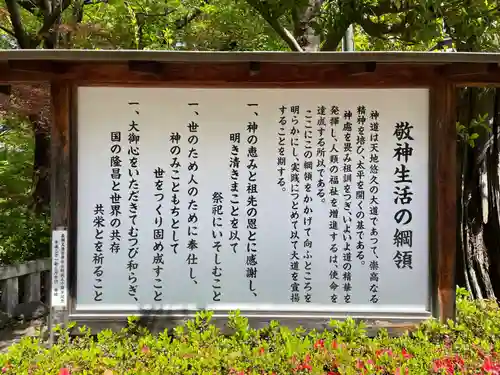 敬神生活の綱領
神道は天地悠久の大道であつて、崇高なる
精神を培ひ、太平を開くの基である。
神慮を畏み祖訓をつぎ、いよいよ道の精華を
発揮し、人類の福祉を増進するは、使命を
達成する所以である。
ここにこの綱領をかかげて向ふところを
明らかにし、実践につとめて以て大道を宣揚
することを期する。
一、神の恵みと祖先の恩とに感謝し、
明き清きまことを以て
祭祀にいそしむこと
一、世のため人のために奉仕し、
神のみこともちとして
世をつくり固め成すこと
一、大御心をいただきてむつび和らぎ、
国の隆昌と世界の共存
共栄とを祈ること